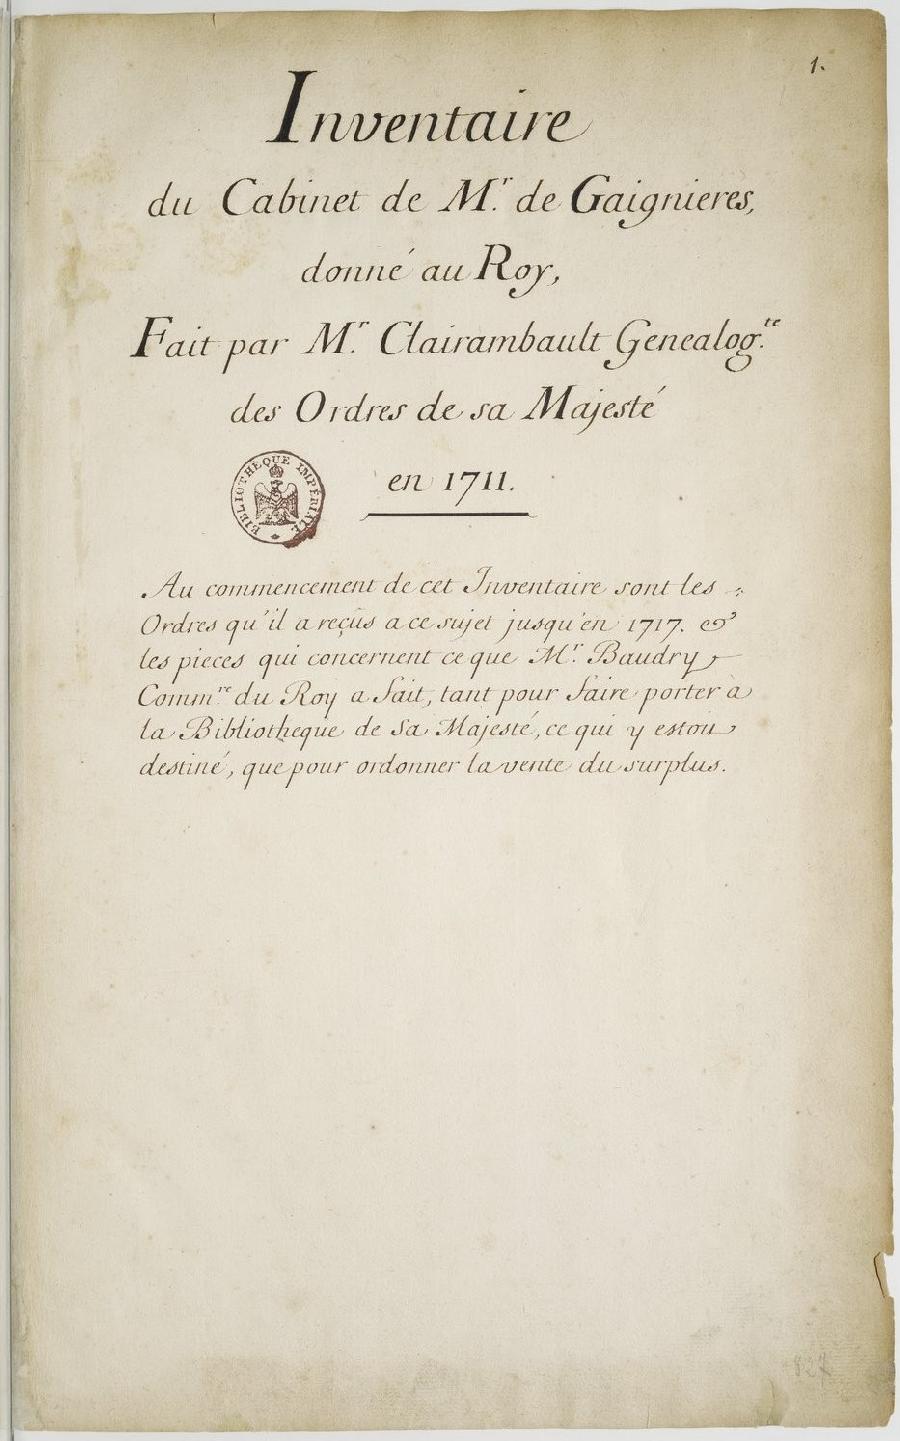 1.
Inventaire
du Cabinet de Mr. de Gaignieres,
donné au Roy,
Fait par Mr. Clairambault Genealog.te
des Ordres de sa Majesté
en 1711.
BIBLIOTHEQUE IMPÉRIALE
Au commencement de cet Inventaire sont les
Ordres qu'il a reçus a ce sujet jusqu'en 1717. &
les pieces qui concernent ce que Mr. Baudry
Commre du Roy a fait, tant pour faire porter à
la Bibliotheque de Sa Majesté, ce qui y estoit
destiné, que pour ordonner la vente du surplus.